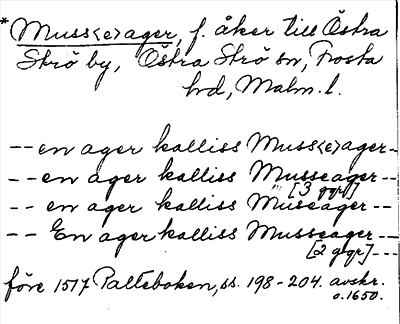 *Muss<e>ager, f. åker till Östra
Strö by, Östra Strö sn, Frosta
hd, Malm. l.
-- en ager kalliss Muss<e>ager --
-- en ager kalliss Musseager --
" [3 ggr]
-- en ager kalliss Museager --
-- En ager kalliss Musseager --
[2 ggr] ---
före 1517 Palteboken, ss. 198-204. avskr.
o. 1650.